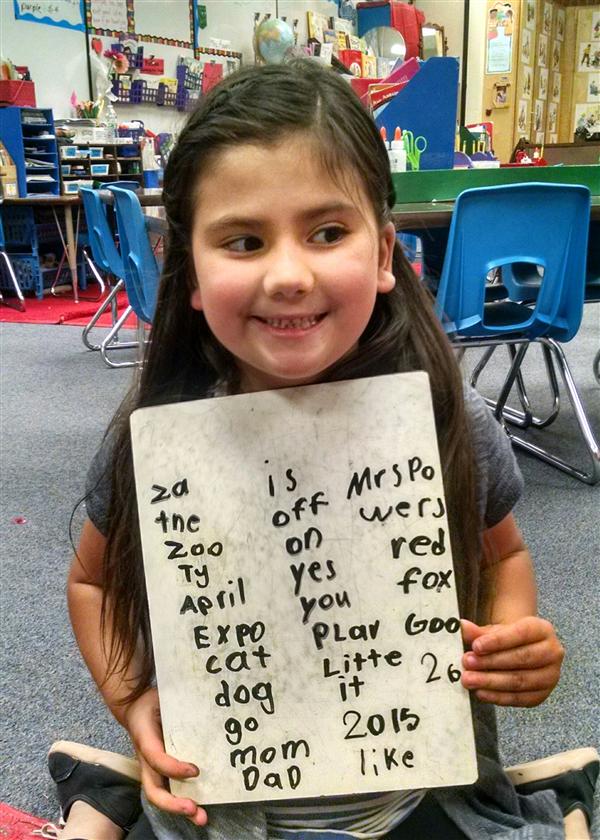 za
the
zoo
Ty
April
Expo
cat
dog
go
mom
DaD
is
off
on
yes
you
PLay
Litte
it
2015
like
MrsPo
wers
red
fox
Goo
26